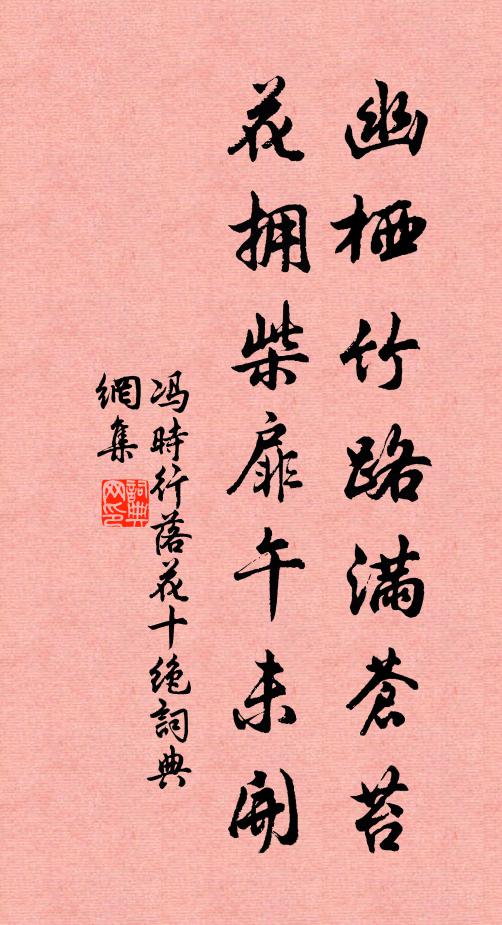 幽栖竹路满蒼苔
花拥柴扉午未開
冯時行落花十绝詞典
網集
詞典网印